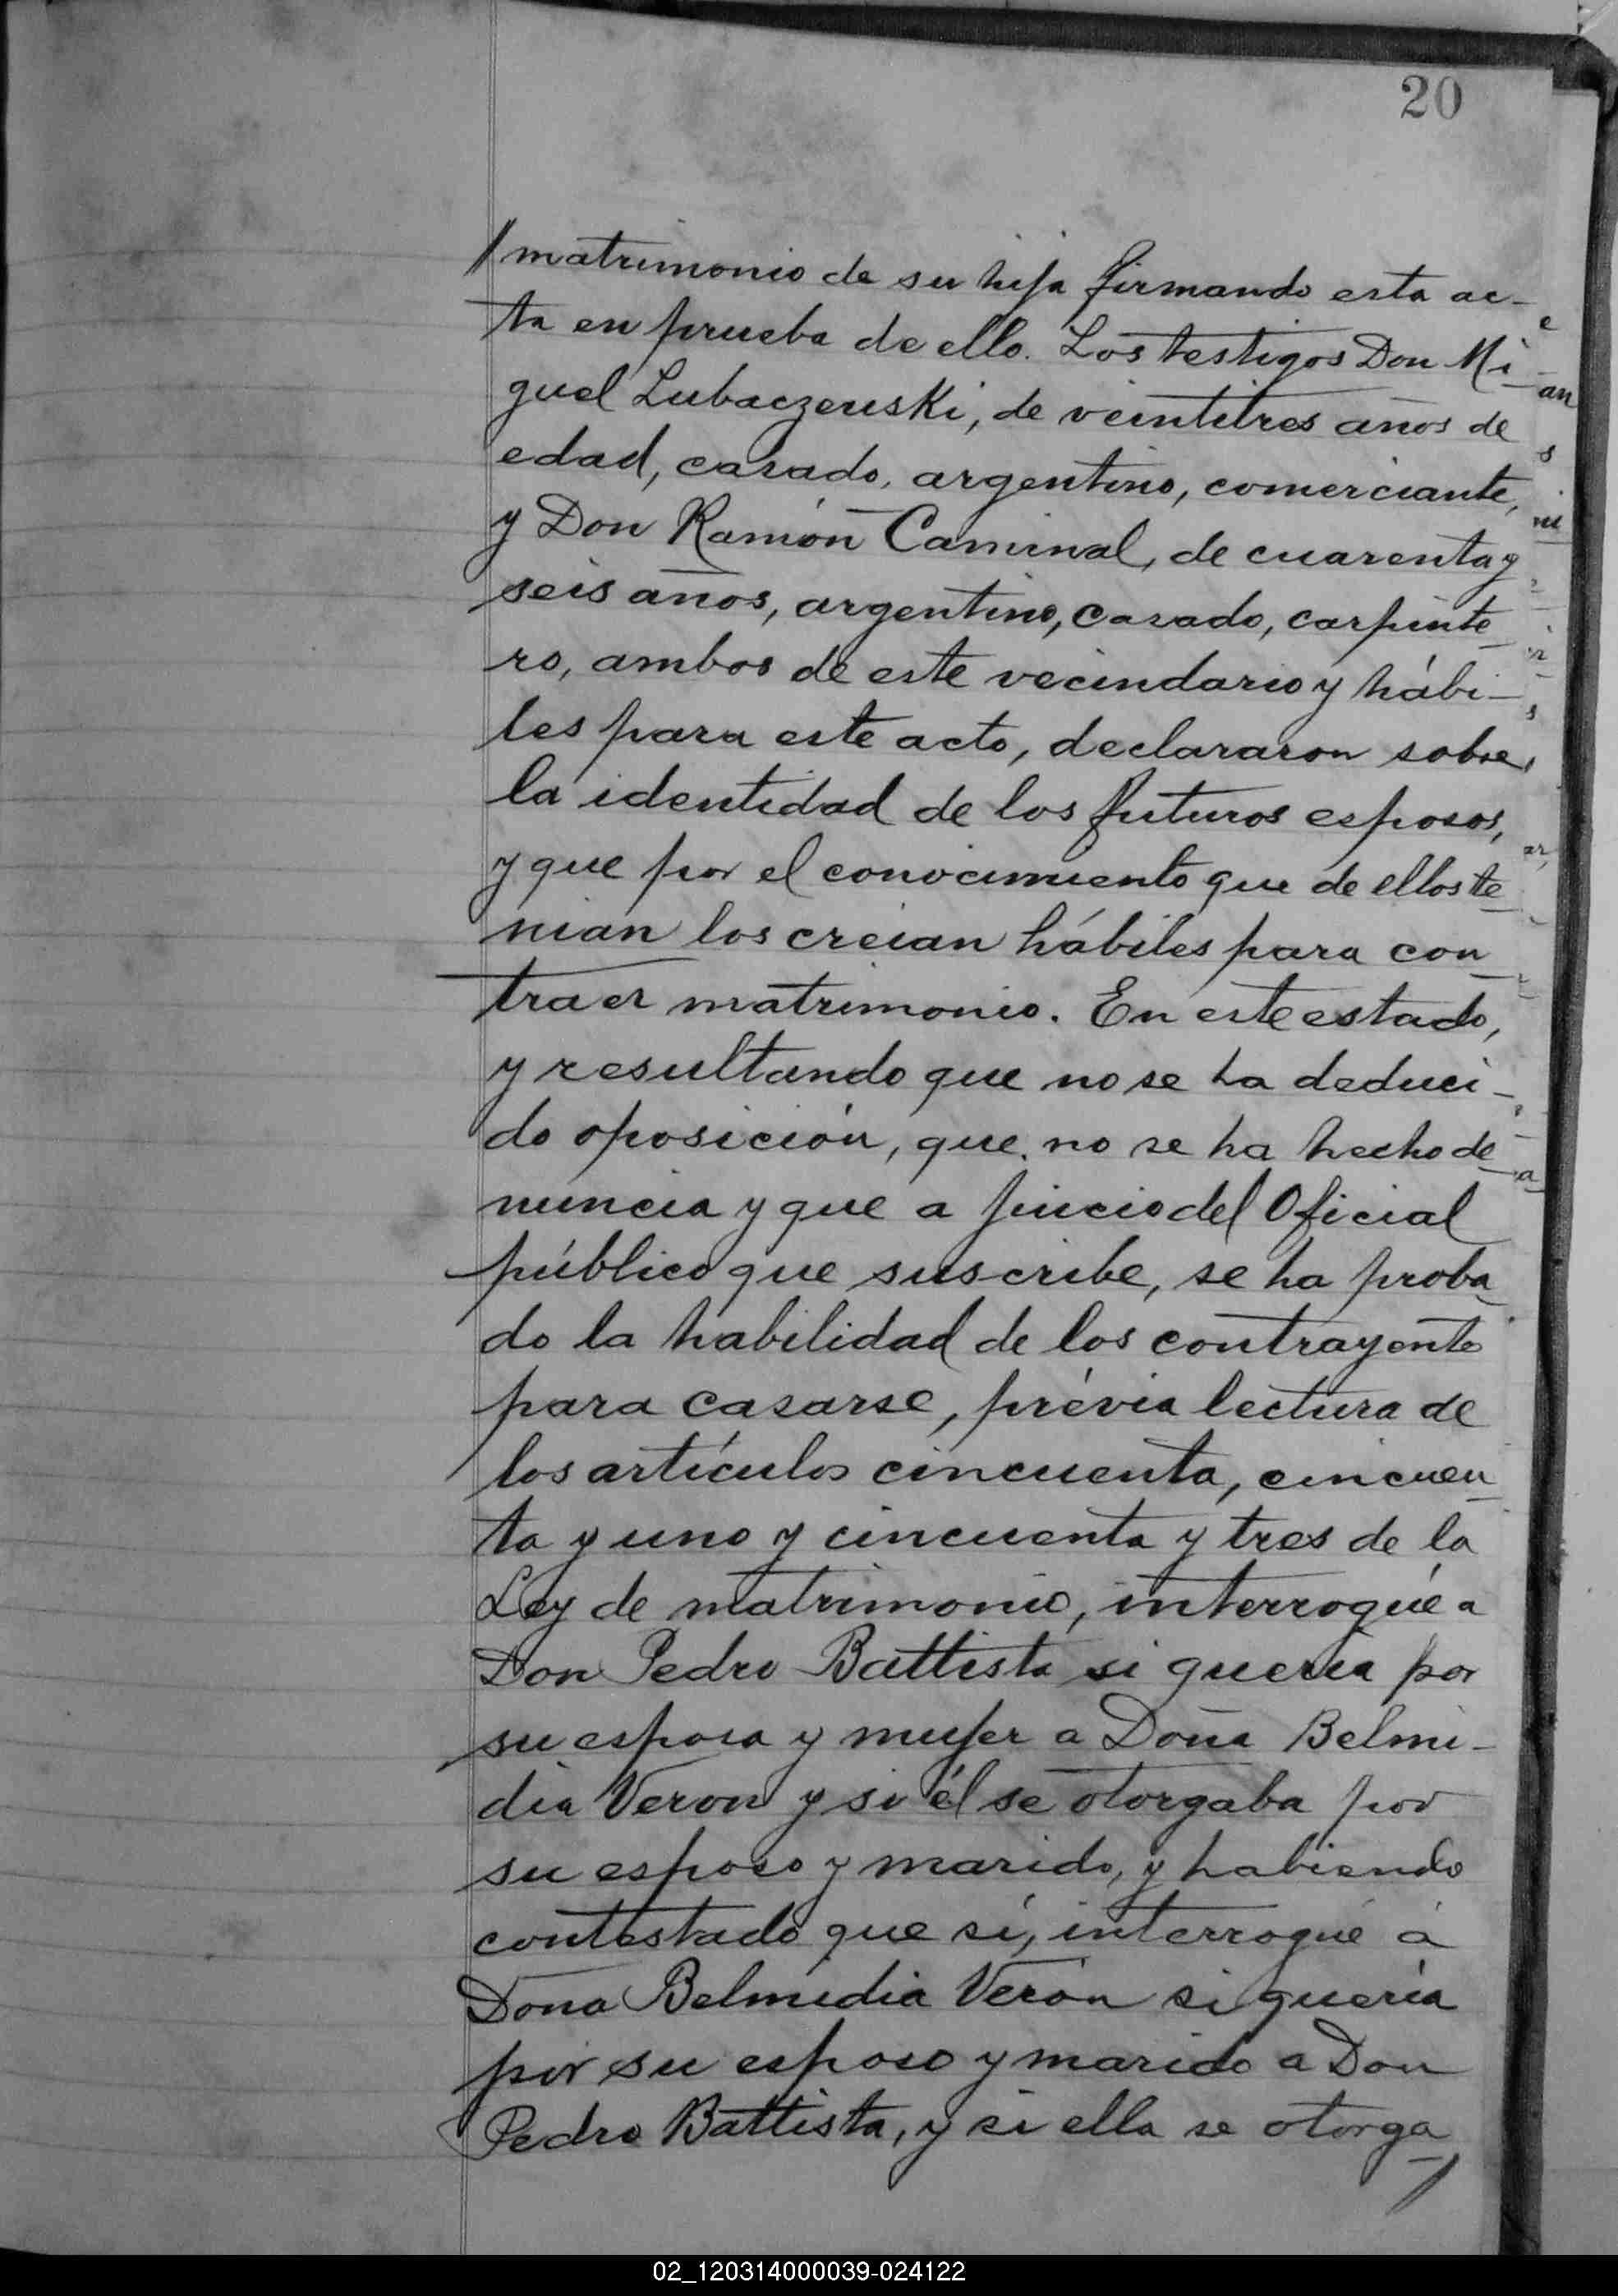 20
//matrimonio de su hija firmando esta ac-
ta en prueba de ello. Los testigos Don Mi-
guel Lubaczeuski, de veintitres años de
edad, casado, argentino, comerciante,
y Don Ramón Caminal, de cuarenta y
seis años, argentino, casado, carpinte
ro, ambos de este vecindario y hábi-
les para este acto, declararon sobre
la identidad de los futuros esposos,
y que por el conocimiento que de ellos te
nian los creian hábiles para con
traer matrimonio. En este estado,
y resultando que no se ha deduci-
do oposición, que no se ha hecho de
nuncia y que a juicio del Oficial
público que suscribe, se ha proba
do la habilidad de los contrayentes
para casarse, prévia lectura de
los artículos cincuenta, cincuen
ta y uno y cincuenta y tres de la
Ley de matrimonio, interrogué a
Don Pedro Battista si queria por
su esposa y mujer a Doña Belmi-
dia Veron y si él se otorgaba por
su esposo y marido, y habiendo
contestado que sí, interrogué á
Doña Belmidia Verón si quería
por su esposo y marido a Don
Pedro Battista, y si ella se otorga
//
02_120314000039-024122